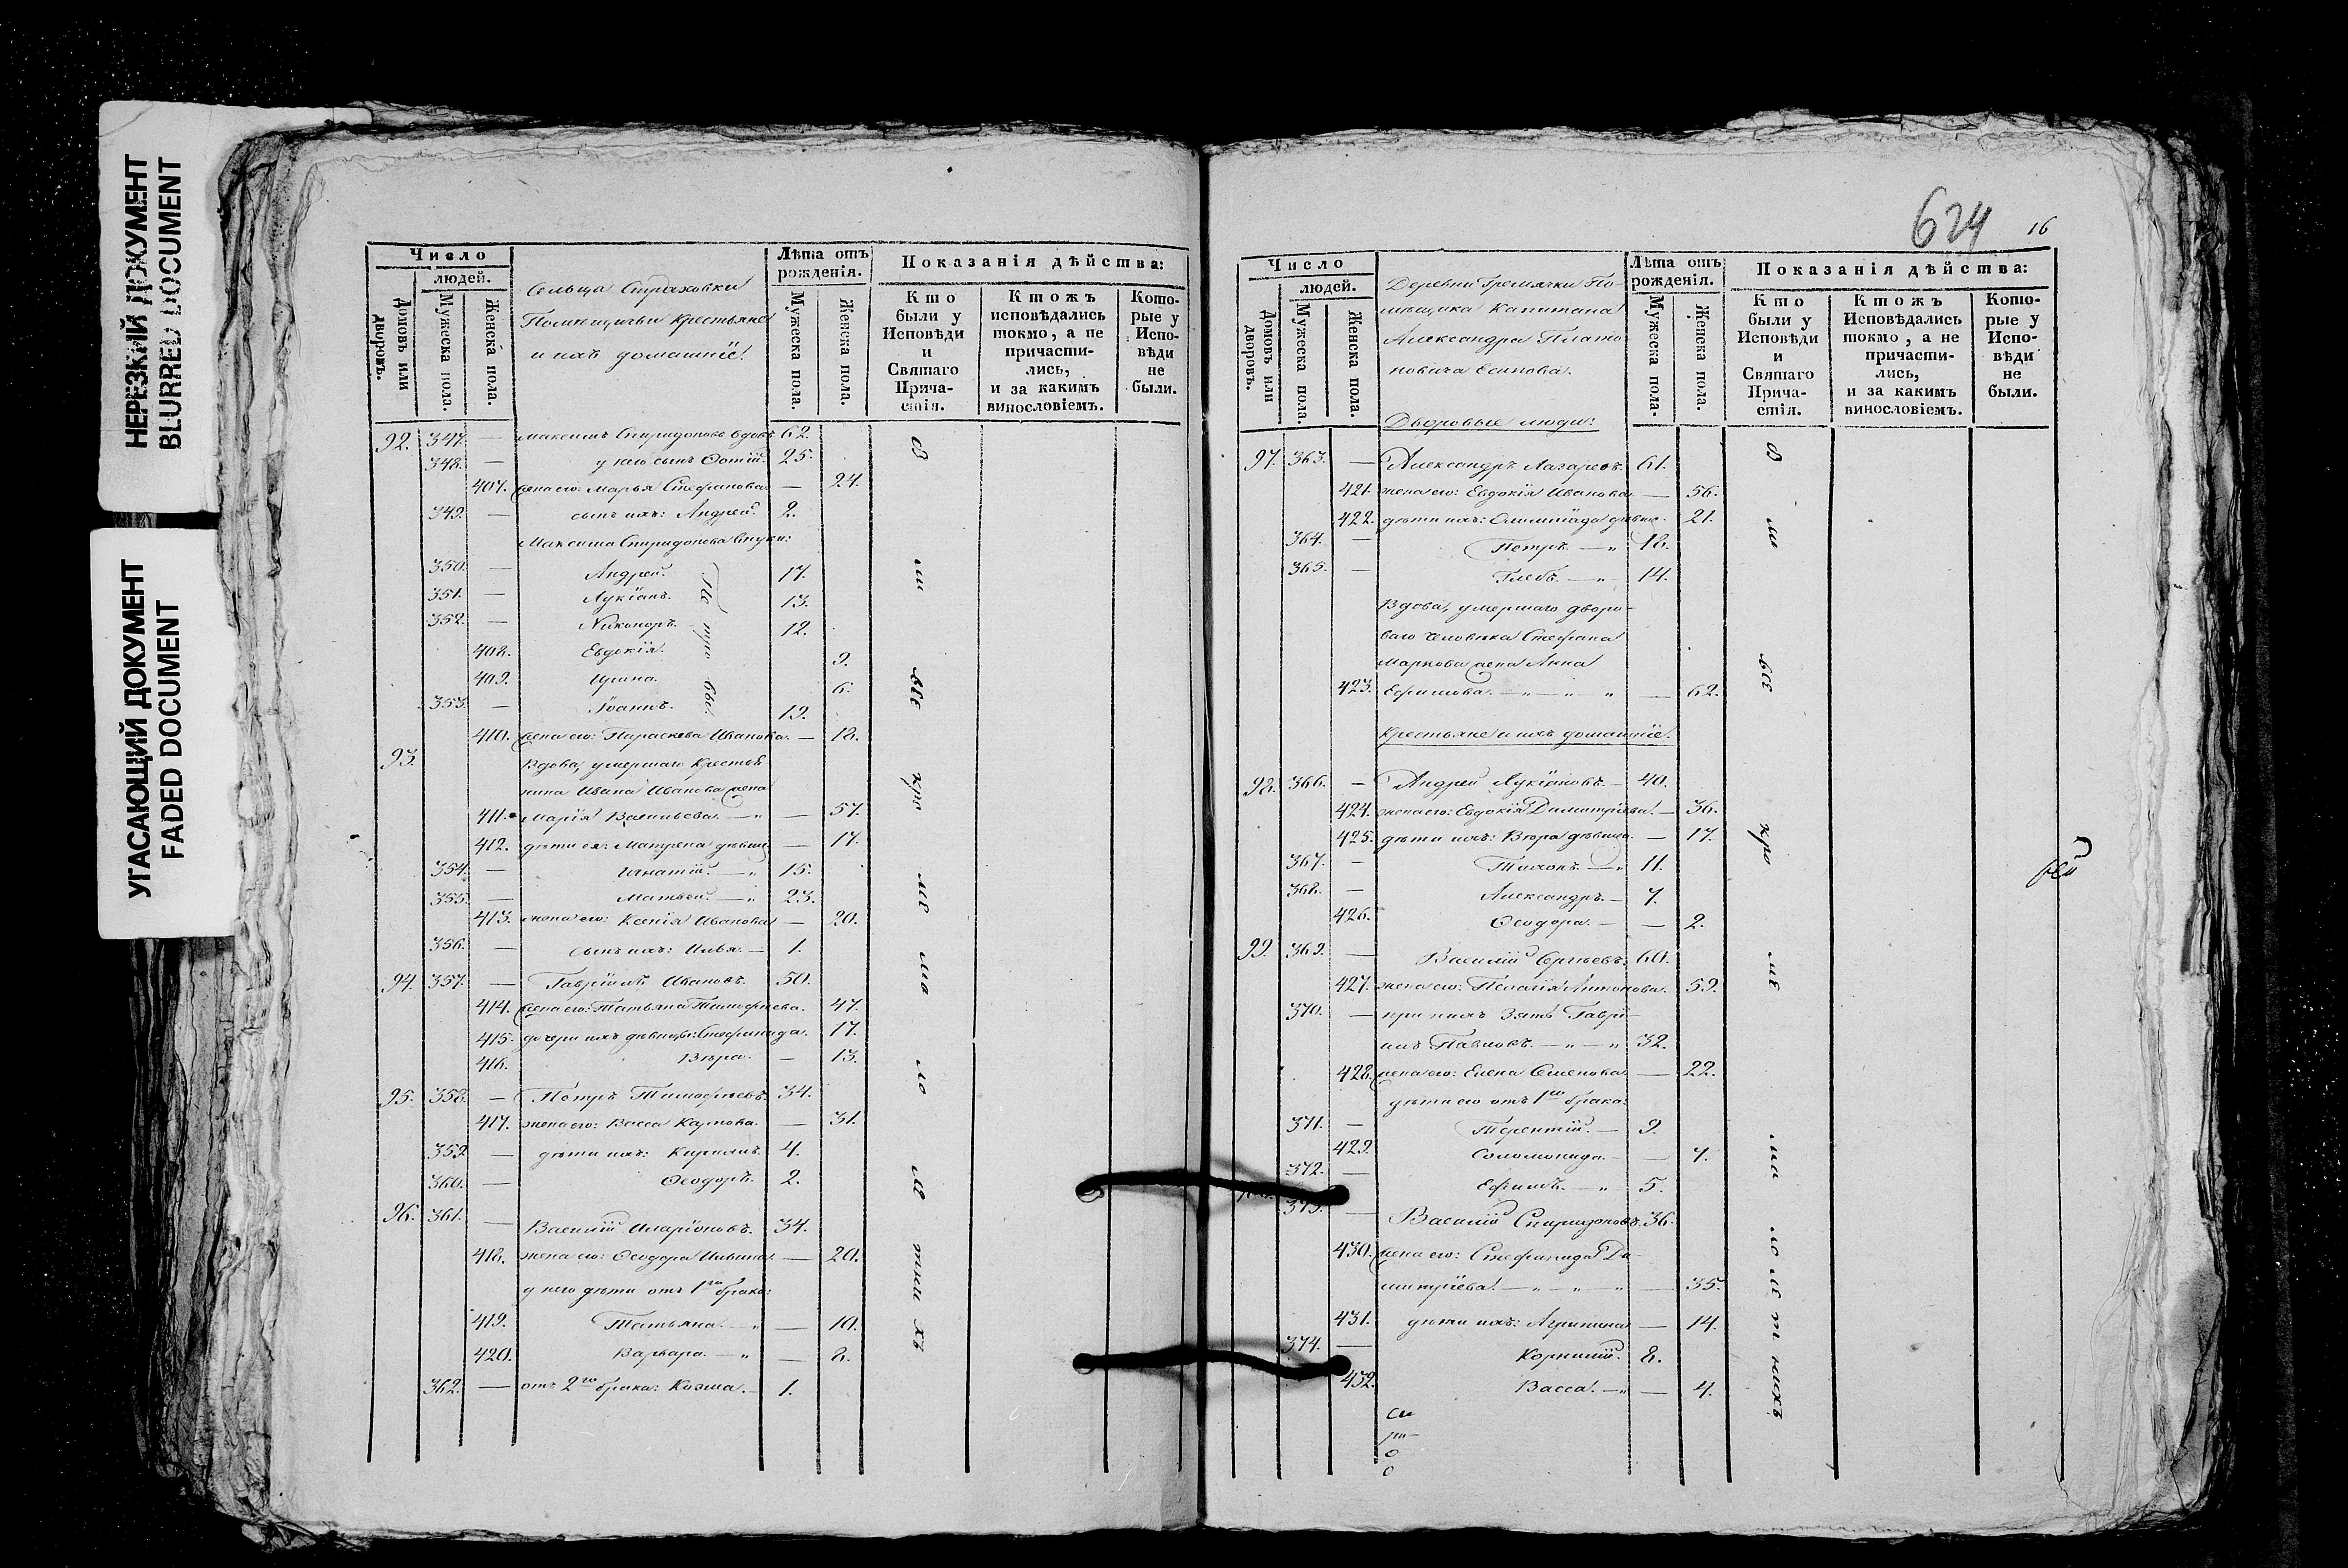 НЕРЕЗКИЙ ДОКУМЕНТ
BLURRED DOCUMENT
УГАСАЮЩИЙ ДОКУМЕНТ
FADED DOCUMENT
Число
людей.
Домовъ или дворовъ.
Мужеска пола.
Женска пола.
Сельца Страховки
Помѣщичьи Крестьяне
и ихъ домашнїе.
Лѣта отъ рожденія.
Мужеска пола.
Женска пола.
Показанія дѣйства:
Кто были у Исповѣди и Святаго Причастія.
Ктожъ исповѣдались токмо, а не причастились, и за какимъ винословіемъ.
Которые у Исповѣди не были.
92. 347. — Максимъ Спиридоновъ вдовъ 62.
348. — у него сынъ Фотій. 25.
407. жена его: Марья Стефанова — 24.
349. — сынъ ихъ: Андрей. 2.
Максима Спиридонова внуки:
350. — Андрей. 17.
351. — Лукїанъ. 13.
352. — Никоноръ. 12.
408. Евдокїя. 9.
409. Ирина. 6.
353. — Іоаннъ. 19.
410. жена его: Параскева Иванова. — 18.
93. Вдова, умершаго Крестья-
нина Ивана Иванова жена
411. Марїя Васильева. — 57.
412. дѣти ея: Матрена дѣвица — 17.
354. — Игнатїй. 15.
355. — Матвей. 23.
413. жена его: Ксенїя Иванова — 20.
356. — сынъ ихъ: Илья. 1.
94. 357. — Гаврїилъ Ивановъ. 50.
414. жена его: Татьяна Тимофеева. 47.
415. дочери ихъ дѣвицы: Стефанида. 17.
416. Вѣра. — 13.
95. 358. — Петръ Тимофеевъ. 34.
417. жена его: Васса Карпова. — 31.
359. — дѣти ихъ: Кириллъ. 4.
360. — Ѳеодоръ. 2.
96. 361. — Василїй Иларїоновъ. 34.
418. жена его: Ѳеодора Ильина. — 20.
у него дѣти отъ 1го брака:
419. Татьяна. — 10.
420. Варвара. — 8.
362. — отъ 2го брака: Козма. 1.
624
16
Число
людей.
Домовъ или дворовъ.
Мужеска пола.
Женска пола.
Деревни Гремячки По-
мѣщика Капитана
Александра Плато-
новича Есипова.
Дворовые люди:
Лѣта отъ рожденія.
Мужеска пола.
Женска пола.
Показанія дѣйства:
Кто были у Исповѣди и Святаго Причастія.
Ктожъ Исповѣдались токмо, а не причастились, и за какимъ винословіемъ.
Которые у Исповѣди не были.
97. 363. — Александръ Лазаревъ. 61.
421. жена его: Евдокїя Иванова. — 56.
422. дѣти ихъ: Олимпїада дѣвица. 21.
364. — Петръ. — 18.
365. — Глебъ. — 14.
Вдова, умершаго дворо-
ваго человѣка Стефана
Маркова жена Анна
423. Ефимова. — 62.
Крестьяне и ихъ домашнїе.
98. 366. — Андрей Лукїановъ. — 40.
424. жена его: Евдокїя Димитрїева. — 36.
425. дѣти ихъ: Вѣра дѣвица. — 17.
367. — Тихонъ. — 11.
368. — Александръ. — 7.
426. Ѳеодора. — 2.
99. 369. — Василїй Сергѣевъ. 60.
427. жена его: Пелагїя Антонова. 59.
370. — при нихъ Зять Гаврї-
илъ Павловъ. — 32.
428. жена его: Елена Семенова. — 22.
дѣти его отъ 1го брака:
371. — Терентїй. — 9.
429. Соломонида. — 7.
372. — Ефимъ. — 5.
373. — Василїй Спиридоновъ. 36.
430. жена его: Стефанида Ди-
митрїева. — 35.
431. дѣти ихъ: Агрипина — 14.
374. — Корнилїй. 8.
432. Васса. — 4.